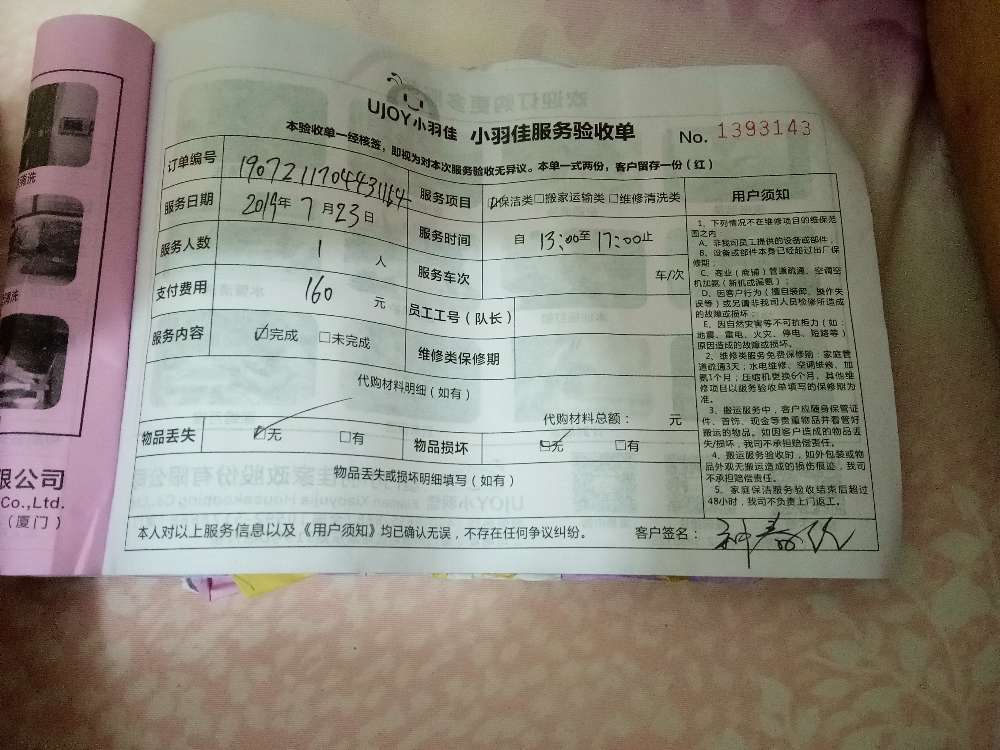 UJOY小羽佳 小羽佳服务验收单 No. 1393143
本验收单一经核签，即视为对本次服务验收无异议。本单一式两份，客户留存一份（红）
订单编号 服务项目 ☑保洁类□搬家运输类□维修清洗类 用户须知
服务日期 2019年7月23日 服务时间 自 13:00至17:00止
服务人数 1人 服务车次 车/次
支付费用 160元 员工工号（队长）
服务内容 ☑完成 □未完成 维修类保修期
代购材料明细（如有）
代购材料总额： 元
物品丢失 ☑无 □有 物品损坏 ☑无 □有
物品丢失或损坏明细填写（如有）
本人对以上服务信息以及《用户须知》均已确认无误，不存在任何争议纠纷。 客户签名：
1、下列情况不在维修项目的维保范
围之内
A、非我司员工提供的设备或部件；
B、设备或部件本身已经超过出厂保
修期；
C、商业（商铺）管道疏通、空调空
机加氨（新机或漏氨）；
D、因客户行为（擅自装卸、操作失
误等）或另请非我司人员检修所造成
的故障或损坏；
E、因自然灾害等不可抗柜力（如：
地震、雷电、火灾、停电、短路等）
原因造成的故障或损坏。
2、维修类服务免费保修期：家庭管
道疏通3天；水电维修、空调维修、加
氨1个月；压缩机更换6个月。其他维
修项目以服务验收单填写的保修期为
准。
3、搬运服务中，客户应随身保管证
件、首饰、现金等贵重物品并看管好
搬运的物品。如因客户造成的物品丢
失/损坏，我司不承担赔偿责任。
4、搬运服务验收时，如外包装或物
品外观无搬运造成的损伤痕迹，我司
不承担赔偿责任。
5、家庭保洁服务验收结束后超过
48小时，我司不负责上门返工。
限公司
Co.,Ltd.
（厦门）
清洗